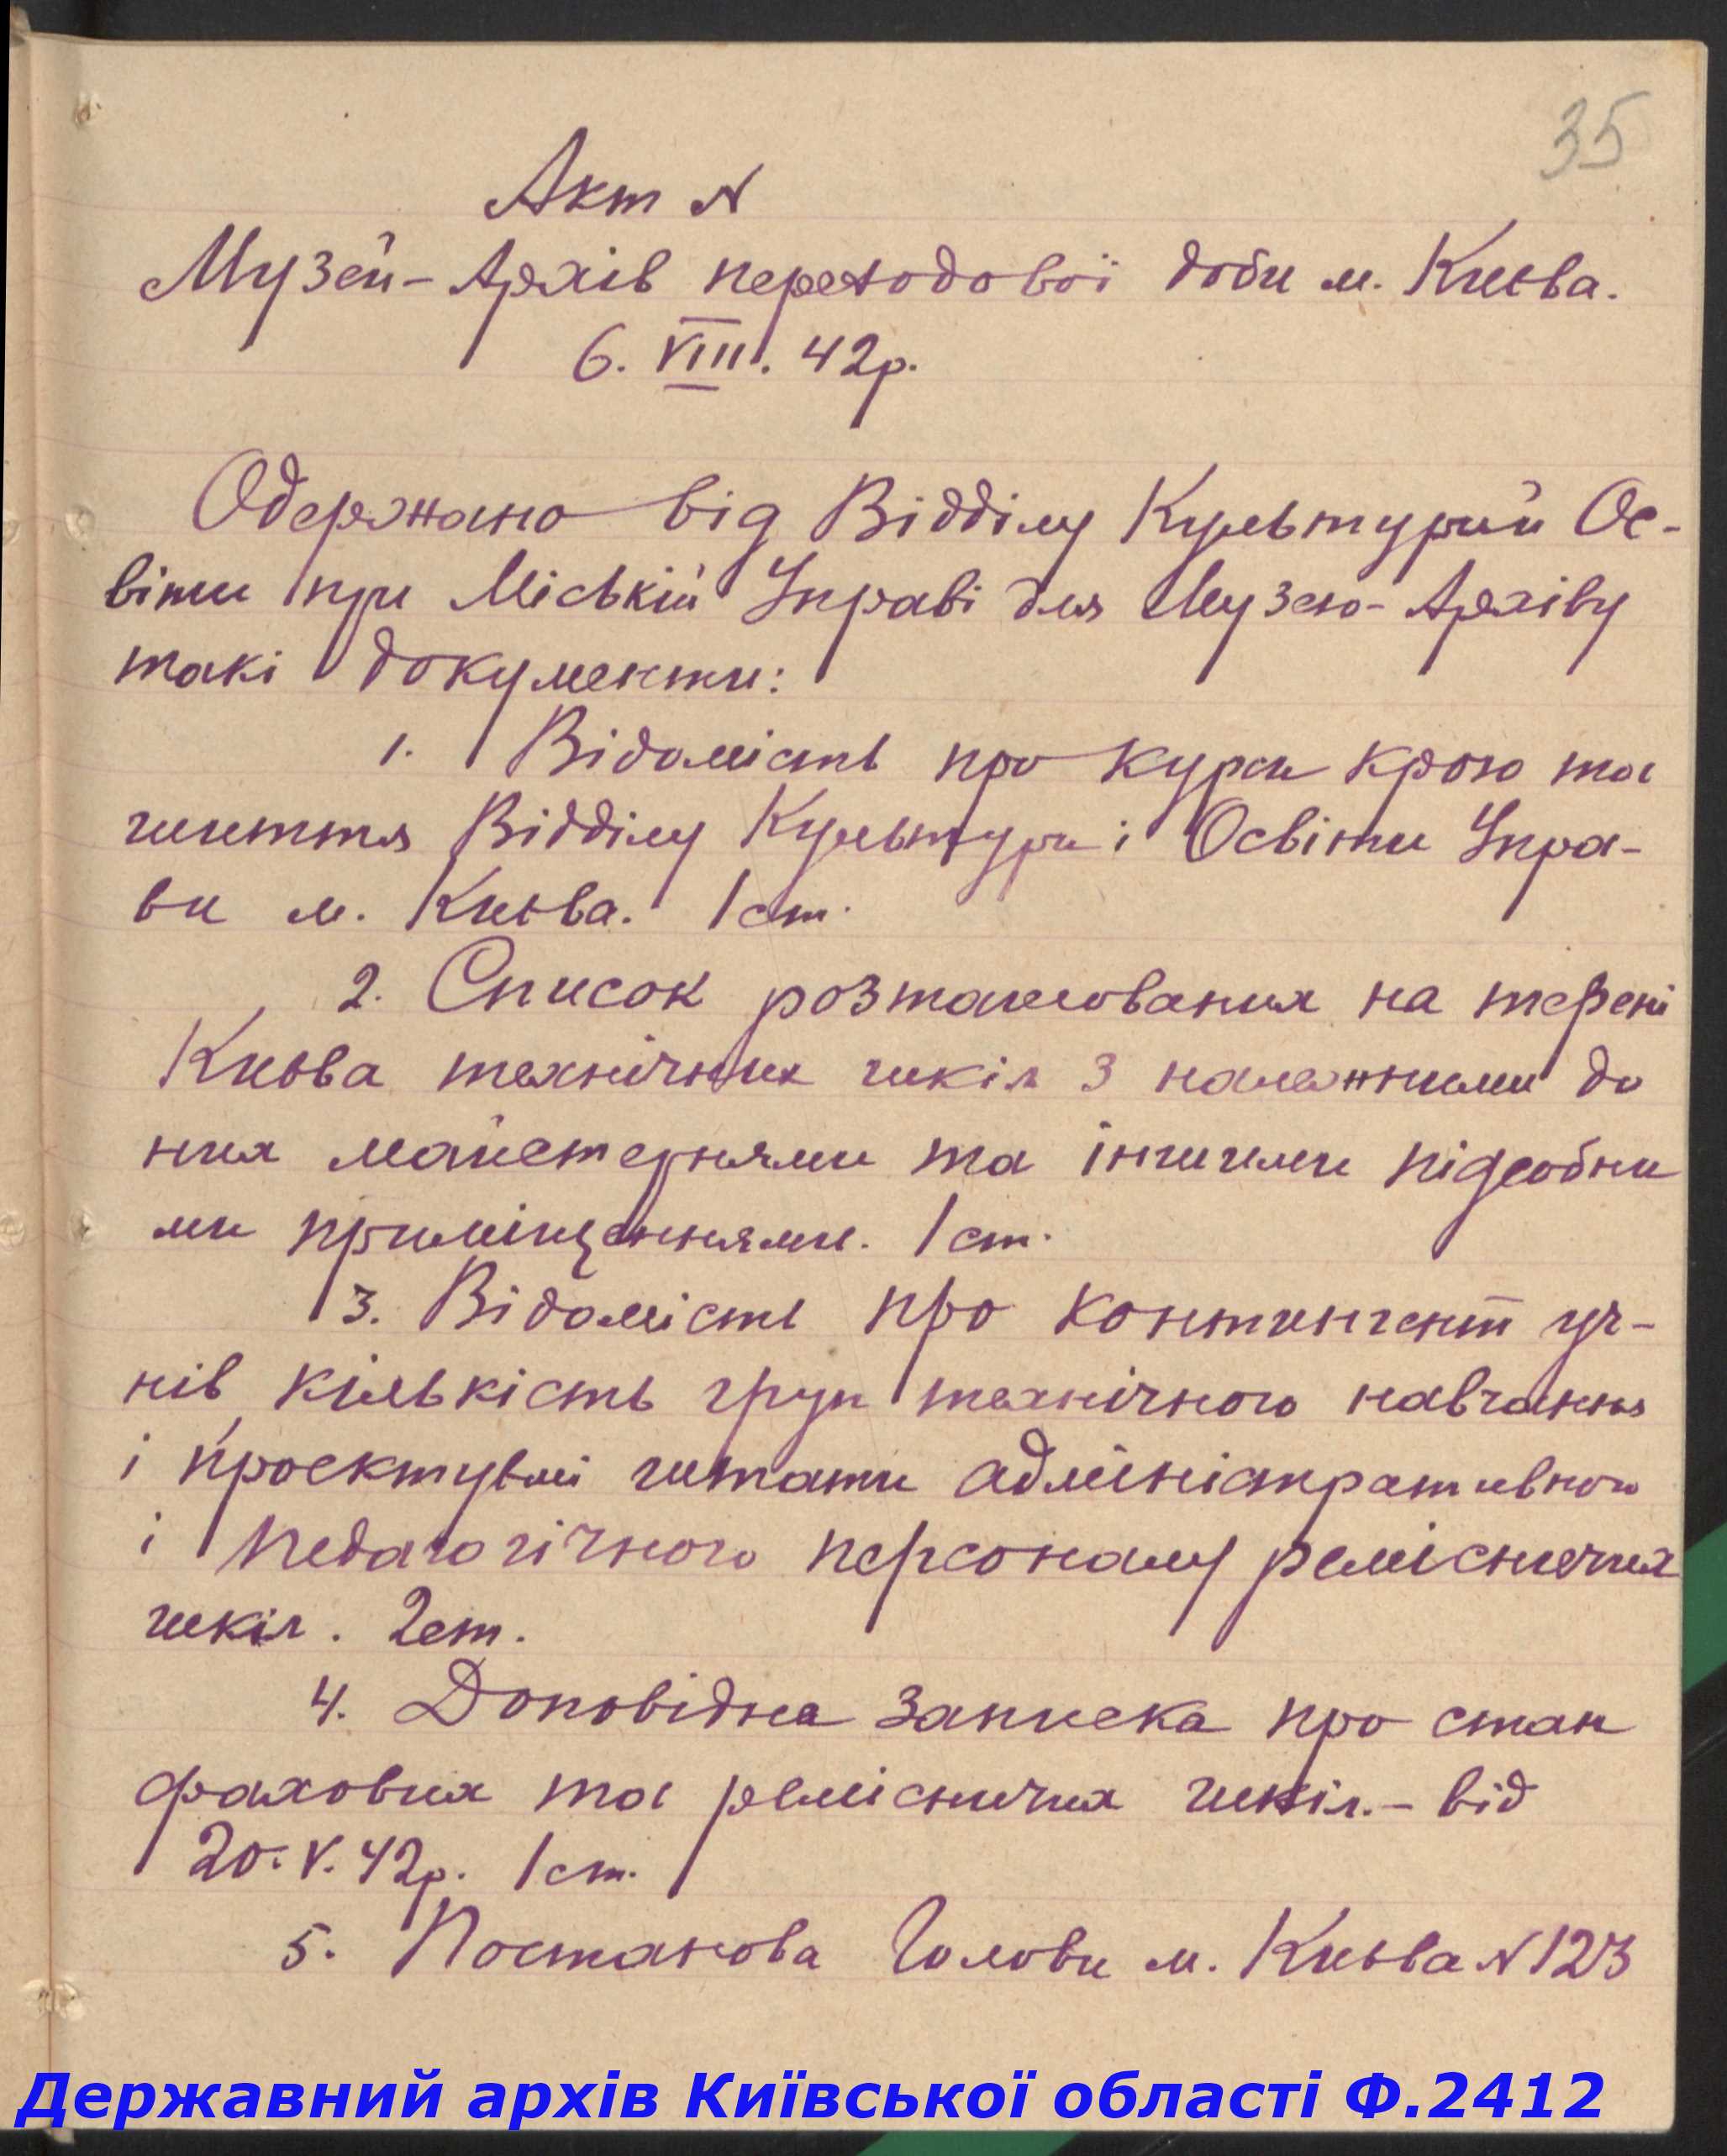 35
Акт N
Музей-Архів переходової доби м. Києва.
6. VIII. 42р.
Одержано від Відділу Культури й Ос-
віти при Міській Управі для Музею-Архіву
такі документи:
1. Відомість про курси крою та
шиття Відділу Культури і Освіти Упра-
ви м. Києва. 1 ст.
2. Список розташовання на терені
Києва технічних шкіл з належними до
них майстернями та іншими підсобни
ми приміщеннями. 1 ст.
3. Відомість про контингент уч-
нів, кількість груп технічного навчання
і проектувмі штати адміністративного
і педагогічного персоналу ремісничих
шкіл. 2 ст.
4. Доповідна записка про стан
фахових та ремісничих шкіл. - від
20. V. 42р. 1 ст.
5. Постанова Голови м. Києва N 123
Державний архів Київської області Ф.2412